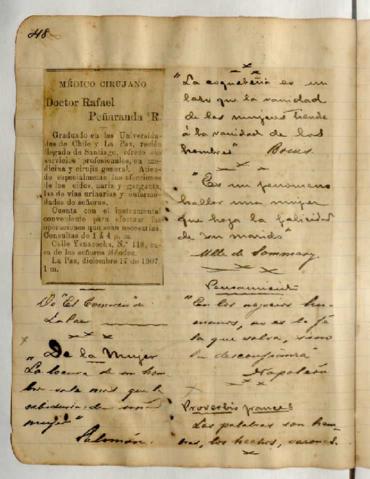 48.
MÉDICO CIRUJANO
Doctor Rafael
Peñaranda R.
Graduado en las Universida-
des de Chile y La Paz, recién
llegado de Santiago, ofrece sus
servicios profesionales, en me-
dicina y cirujía general. Atien-
de especialmente las afecciones
de los oidos, nariz y garganta,
las de vías urinarias y enferme-
dades de señoras.
Cuenta con el instrumental
conveniente para efectuar las
operaciones que sean necesarias.
Consultas de 1 á 4 p. m.
Calle Yanacocha, N.° 118, ca-
sa de los señores Méndez.
La Paz, diciembre 17 de 1907.
1 m.
De "El Comercio" de
La Paz
De la Mujer
"La locura de un hom-
bre vale más que la
sabiduría de una
mujer"
Salomón.
"La coquetería es un
lazo que la vanidad
de las mujeres tiende
á la vanidad de los
hombres"
"Es un fenómeno
hallar una mujer
que haga la felicidad
de su marido"
Mlle de Sommery.
Pensamiento
"En los negocios hu-
manos, no es la fé
la que salva, sino
la desconfianza"
Napoleón
Proverbio francés
Las palabras son hem-
bras, los hechos, varones.